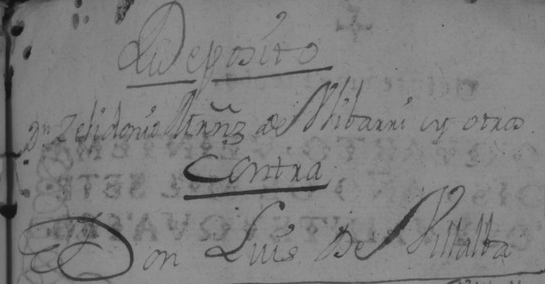 Deposito
Dn Zelidonio Muñoz de Ulibarri y otros
Contra
Don Luis de Villalba